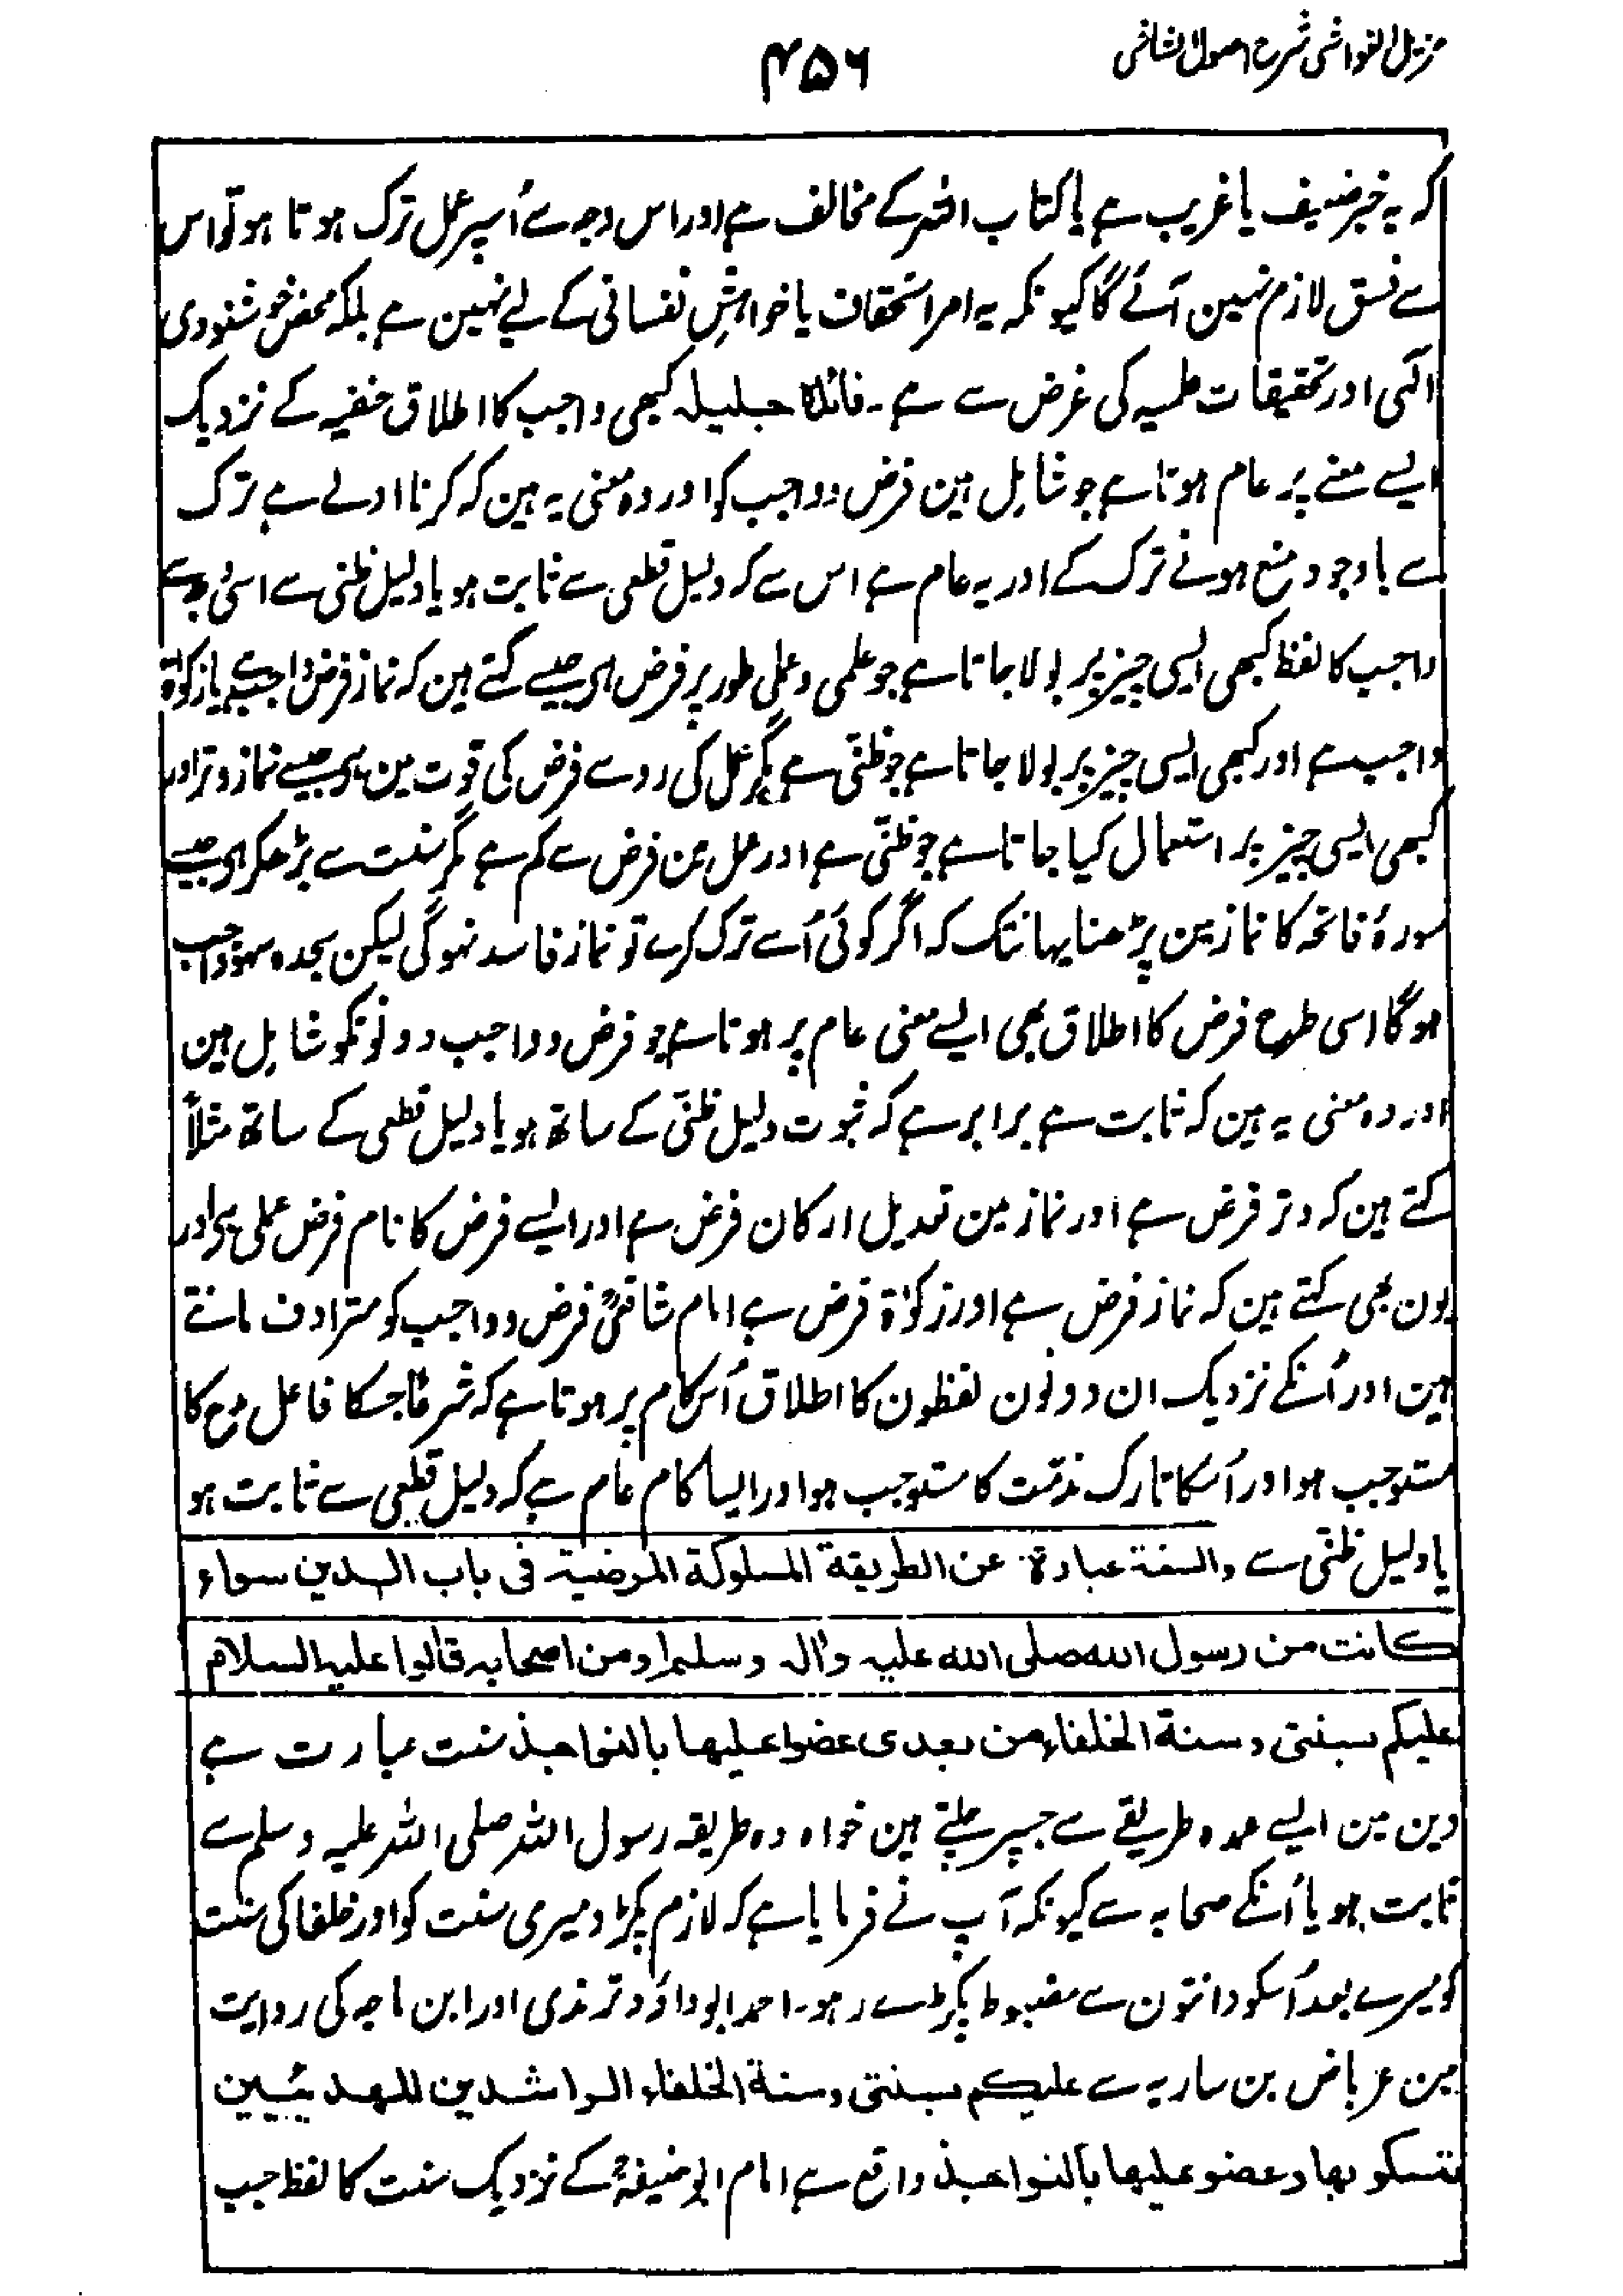 مزیل الغواشی شرح اصول الشاشی
۴۵۶
کہ یہ خبر ضعیف یا غریب ہے یا کتاب اللہ کے مخالف ہے اور اس وجہ سے اُسپر عمل ترک ہوتا ہو تو اس
سے فسق لازم نہین آئے گا کیونکہ یہ امر استخفاف یا خواہشِ نفسانی کے لیے نہین ہے بلکہ محض خوشنودی
الٰہی اور تحقیقات علمیہ کی غرض سے ہے۔ فائدۂ جلیلہ کبھی واجب کا اطلاق حنفیہ کے نزدیک
ایسے معنے پر عام ہوتا ہے جو شامل ہین فرض و واجب کو اور وہ معنی یہ ہین کہ کرنا اولے ہے ترک
سے باوجود منع ہونے ترک کے اور یہ عام ہے اس سے کہ دلیل قطعی سے ثابت ہو یا دلیل ظنی سے اسی وجہ سے
واجب کا لفظ کبھی ایسی چیز پر بولا جاتا ہے جو علمی و عملی طور پر فرض ہو جیسے کہتے ہین کہ نماز فرض واجب ہے یا زکوٰۃ
واجب ہے اور کبھی ایسی چیز پر بولا جاتا ہے جو ظنّی ہے مگر عمل کی رو سے فرض کی قوت مین ہو جیسے نماز وتر اور
کبھی ایسی چیز پر استعمال کیا جاتا ہے جو ظنّی ہے اور عمل مین فرض سے کم ہے مگر سنت سے بڑھکر ہو جیسے
سورۂ فاتحہ کا نماز مین پڑھنا یہانتک کہ اگر کوئی اُسے ترک کرے تو نماز فاسد نہوگی لیکن سجدہ سہو واجب
ہوگا اسی طرح فرض کا اطلاق بھی ایسے معنی عام پر ہوتا ہے جو فرض و واجب دونونکو شامل ہین
اور وہ معنی یہ ہین کہ ثابت ہے برابر ہے کہ ثبوت دلیل ظنّی کے ساتھ ہو یا دلیل قطعی کے ساتھ مثلاً
کہتے ہین کہ وتر فرض ہے اور نماز مین تعدیل ارکان فرض ہے اور ایسے فرض کا نام فرض عملی ہو اور
یون بھی کہتے ہین کہ نماز فرض ہے اور زکوٰۃ فرض ہے امام شافعیؒ فرض و واجب کو مترادف مانتے
ہین اور اُنکے نزدیک ان دونون لفظون کا اطلاق اُس کام پر ہوتا ہے کہ شرعًا جسکا فاعل مدح کا
مستوجب ہو اور اُسکا تارک مذمّت کا مستوجب ہو اور ایسا کام عام ہے کہ دلیل قطعی سے ثابت ہو
یا دلیل ظنّی سے والسنة عبارة عن الطریقة المسلوکة المرضیة فی باب الدین سواء
کانت من رسول اللہ صلی اللہ علیہ واٰلہ وسلم او من اصحابہ قالوا علیہ السلام
علیکم بسنتی و سنة الخلفاء من بعدی عضوا علیھا بالنواجذ سنت عبارت ہے
دین مین ایسے عمدہ طریقے سے جسپر چلتے ہین خواہ وہ طریقہ رسول اللہ صلی اللہ علیہ وسلم سے
ثابت ہو یا اُنکے صحابہ سے کیونکہ آپ نے فرمایا ہے کہ لازم پکڑو میری سنت کو اور خلفا کی سنت
کو میرے بعد اُسکو دانتون سے مضبوط پکڑے رہو۔ احمد ابوداؤد ترمذی اور ابن ماجہ کی روایت
مین عرباض بن ساریہ سے علیکم بسنتی و سنة الخلفاء الراشدین المھدیّین
تمسکو بھا و عضو علیھا بالنواجذ واقع ہے امام ابوحنیفہؒ کے نزدیک سنت کا لفظ جب